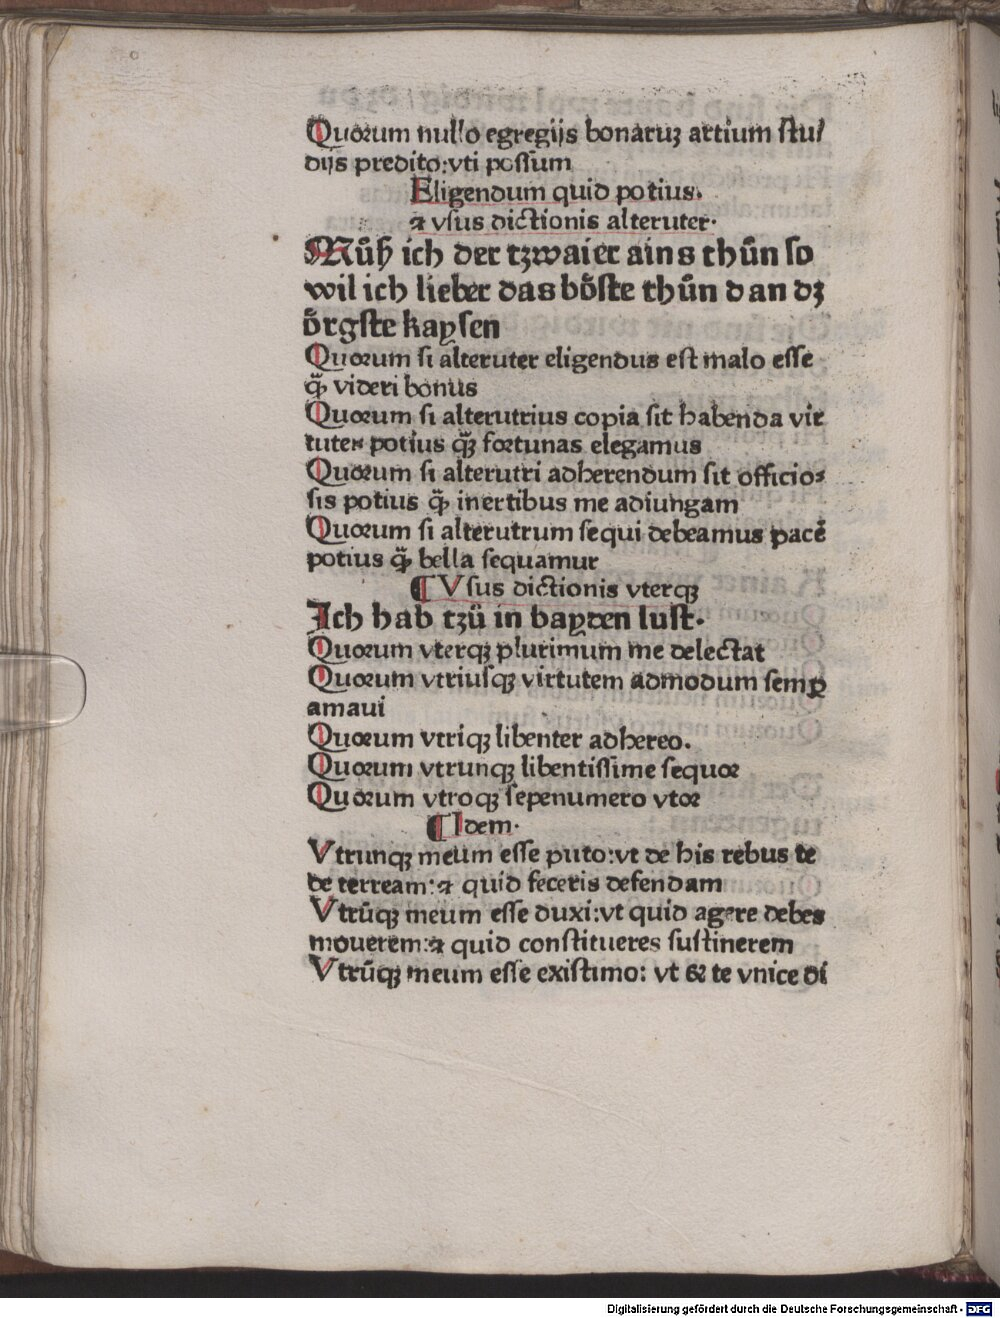 Quorum nullo egregijs bonaruʒ artium ſtu/
dijs predito:vti poſſum
Eligendum quid potius.
⁊ vſus dictionis alteruter.
Můß ich der tzwaier ains thůn ſo
wil ich lieber das bőſte thůn dan dʒ
őrgſte hayſen
Quorum ſi alteruter eligendus eſt malo eſſe
q̃ videri bonus
Quorum ſi alterutrius copia ſit habenda vir
tuteꝫ potius q̃ʒ fortunas elegamus
Quorum ſi alterutri adherendum ſit officio⸗
ſis potius q̃ inertibus me adiungam
Quorum ſi alterutrum ſequi debeamus pacē
potius q̃ bella ſequamur
¶ Vſus dictionis vterqʒ
Ich hab tzů in bayden luſt.
Quorum vterqʒ plurimum me delectat
Quorum vtriuſqʒ virtutem admodum ſemꝑ
amaui
Quorum vtriqʒ libenter adhereo.
Quorum vtrunqʒ libentiſſime ſequor
Quorum vtroqʒ ſepenumero vtor
¶ Idem.
Vtrunqʒ meum eſſe puto:vt de his rebus te
de terream:⁊ quid feceris defendam
Vtrūqʒ meum eſſe duxi:vt quid agere debes
mouerem:⁊ quid conſtitueres ſuſtinerem
Vtrūqʒ meum eſſe existimo: vt & te vnice di
Digitalisierung gefördert durch die Deutsche Forschungsgemeinschaft - DFG